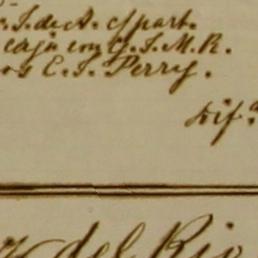 S. de A. c/ part.
caja con G. S. M. R.
os C. S. Perry.
Dif.ª
del Rio